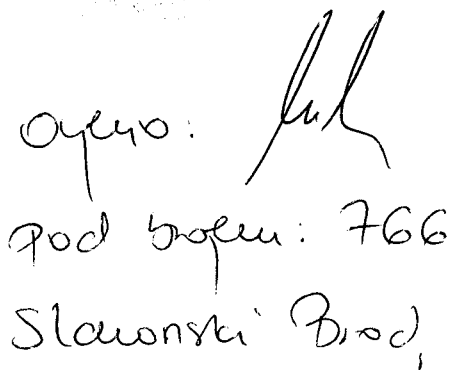 Ovjerio:
pod brojem: 766
Slavonski Brod,